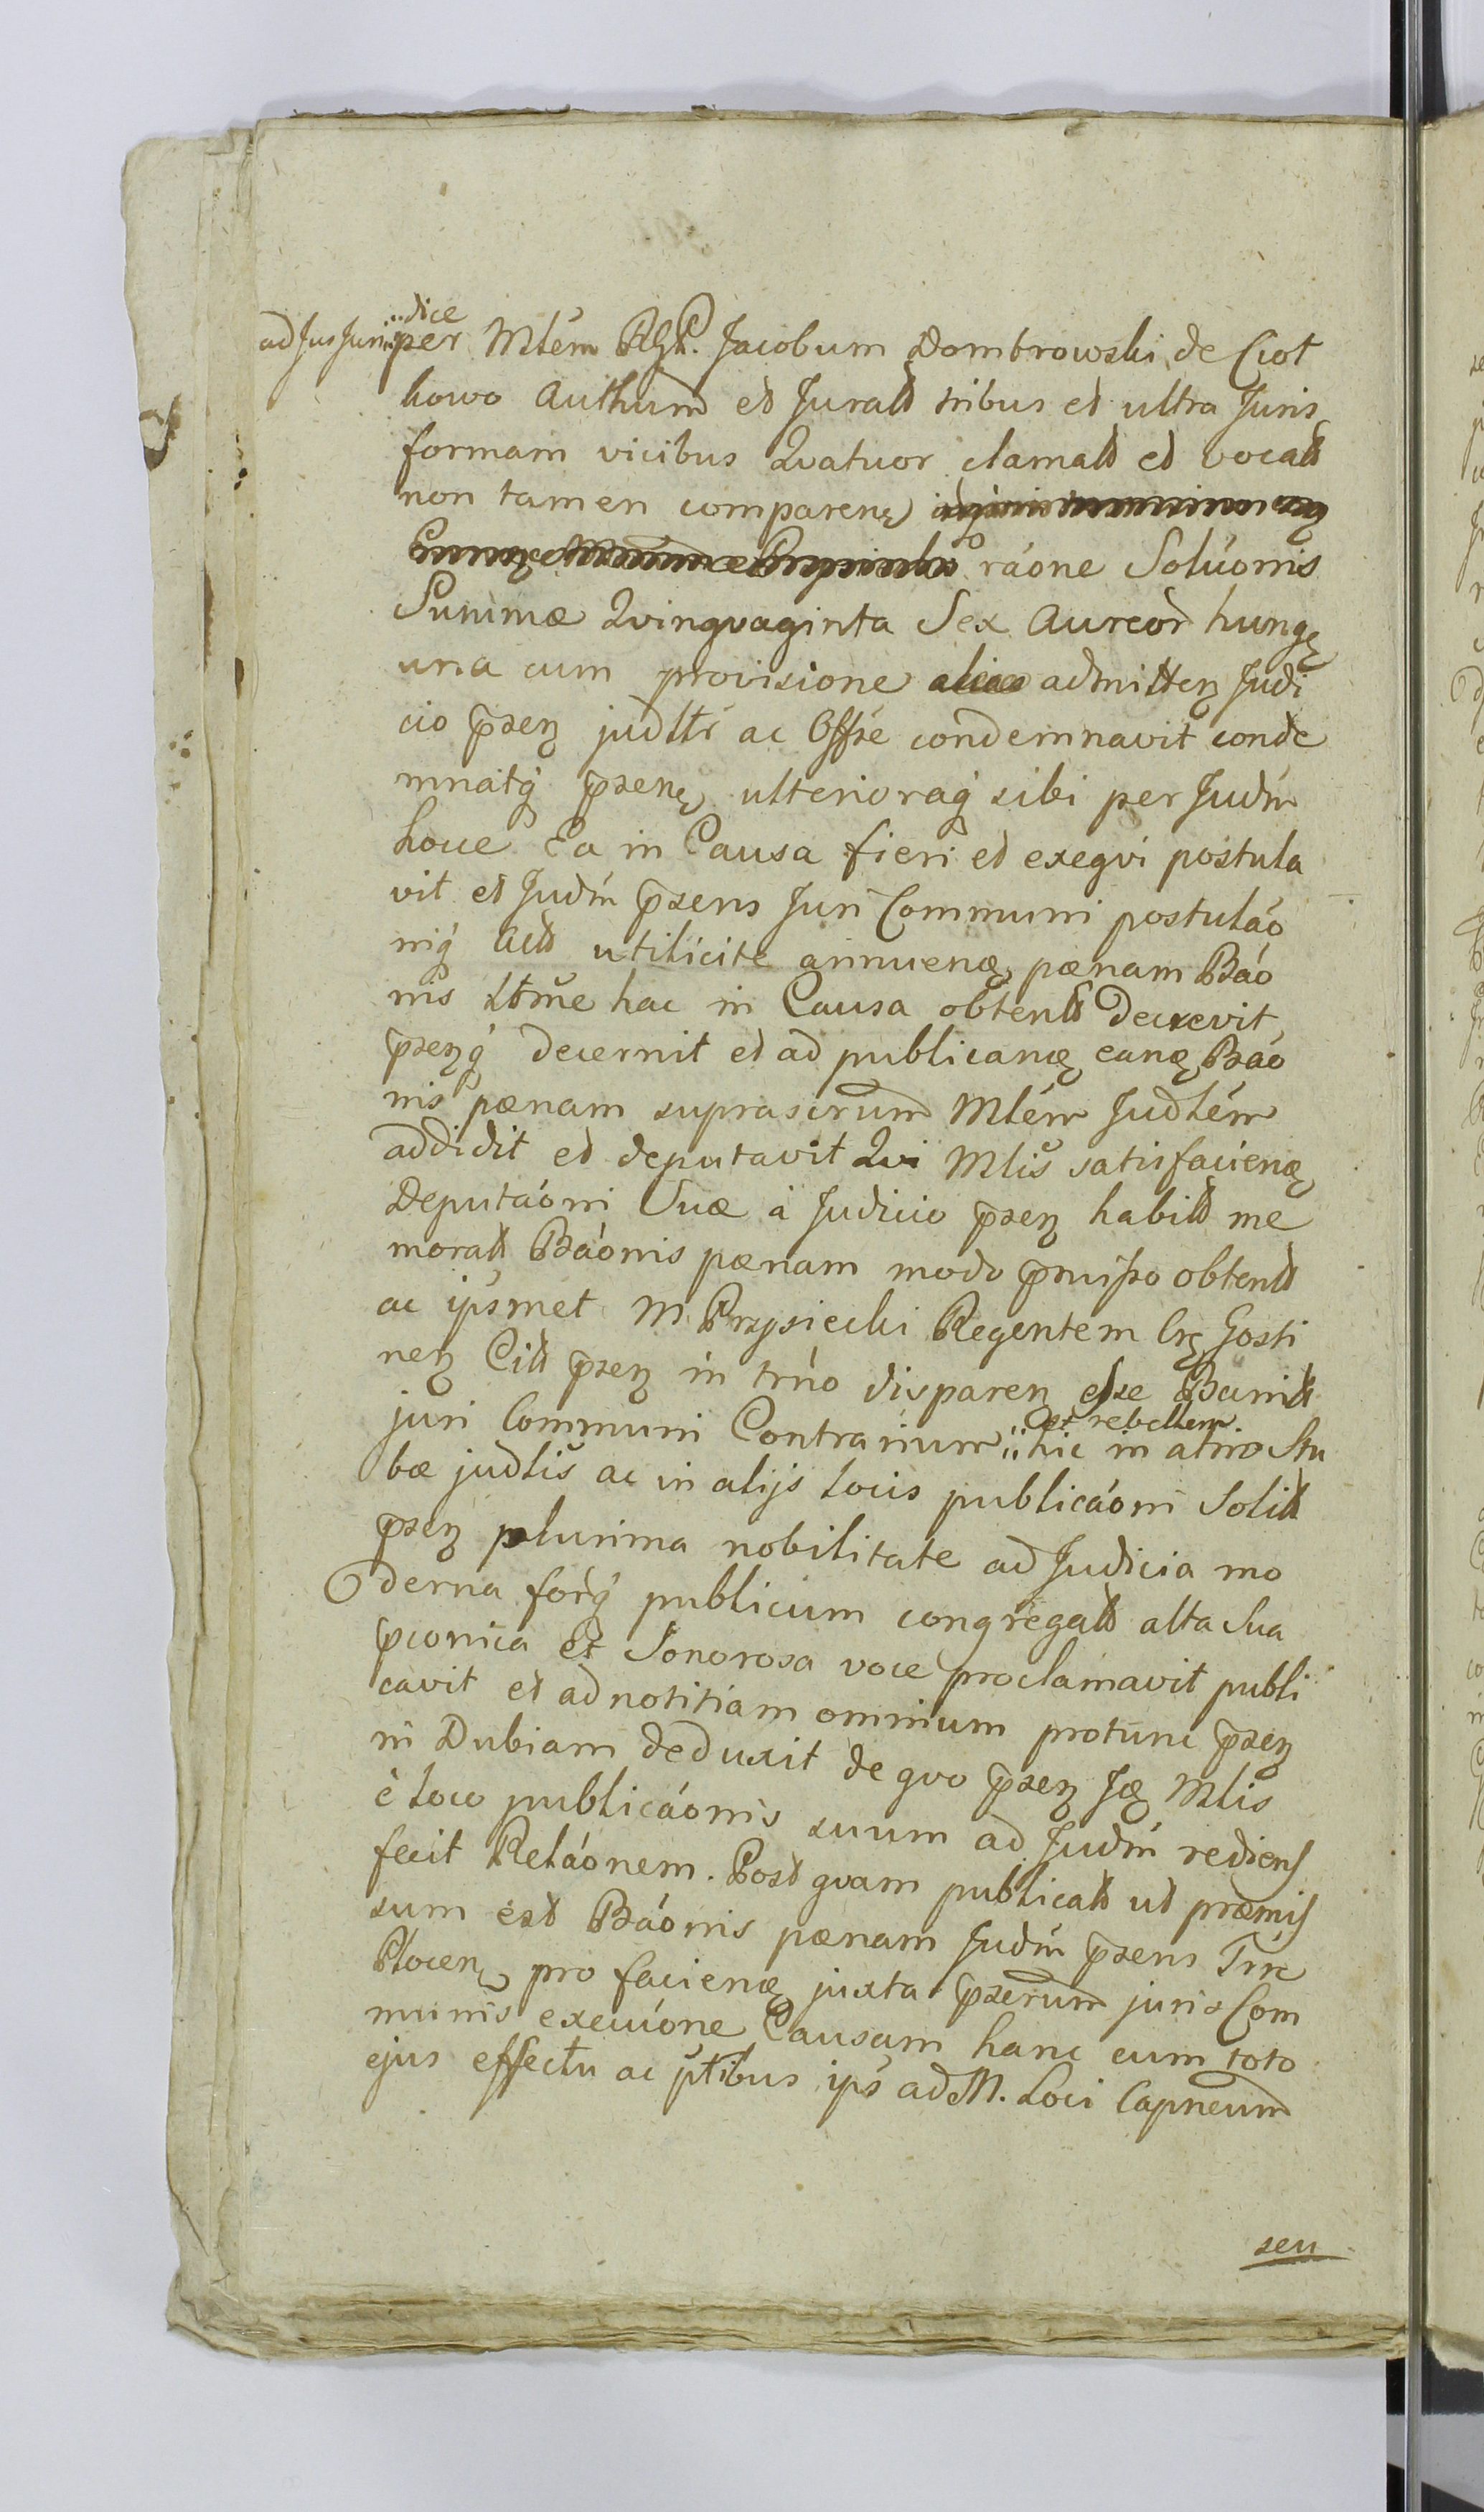 ad Jus Juri dice
per Mlém RGR. Jacobum Dombrowski de Ciot
kowo Authum et Juratt tribus et ultra Juris
formam vicibus Qvatuor clamatt et vocatt
non tamen comparenę
ráóne Solúonis
Summæ Qvinqvaginta Sex Aureor hungę
una cum provisione admitten Judi
cio p̄sen judltr ac Offse condemnavit conde
mnatq́ p̄senę ulterioraq́ sibi per Judm
hocce Ea in Causa fieri et exeqvi postula
vit et Judm p̄sens Juri Communi postuláo
niq́ Actt utilicite annuenę pænam Báo
nis ltme hac in Causa obtentt Decrevit
p̄senq́ decernit et ad publicanę eanę Báo
nis pænam suprascrum Mlém Judlém
addidit et deputavit Qvi Mlis satisfacienę
Deputáoni Suæ à Judicio p̄sen habitt me
moratt Báonis pænam modo p̄misso obtentt
ac ipsmet M Przysiecki Regentem Crę Gosti
nen Citt p̄sen in trno disparen esse Bannitt
juri Communi Contrarium et rebellem hic in atrio Stu
bæ judlis ac in alijs locis publicáoni Solitt
p̄sen plurima nobilitate ad Judicia mo
derna forq́ publicum congregatt alta Sua
p̄conica et Sonorosa voce proclamavit publi
cavit et ad notitiam omnium protunc p̄sen
in Dubiam deduxit de qvo p̄sen Ję Mlis
è loco publicáonis suum ad Judm rediens
fecit Reláonem. Post qvam publicatt ut præmis
sum est Báonis pænam Judm p̄sens Trre
Plocenę pro facienę juxta p̄scrum juris Com
munis execúone Causam hanc cum toto
ejus effectu ac ptibus ips ad M. Loci Capneum
seu